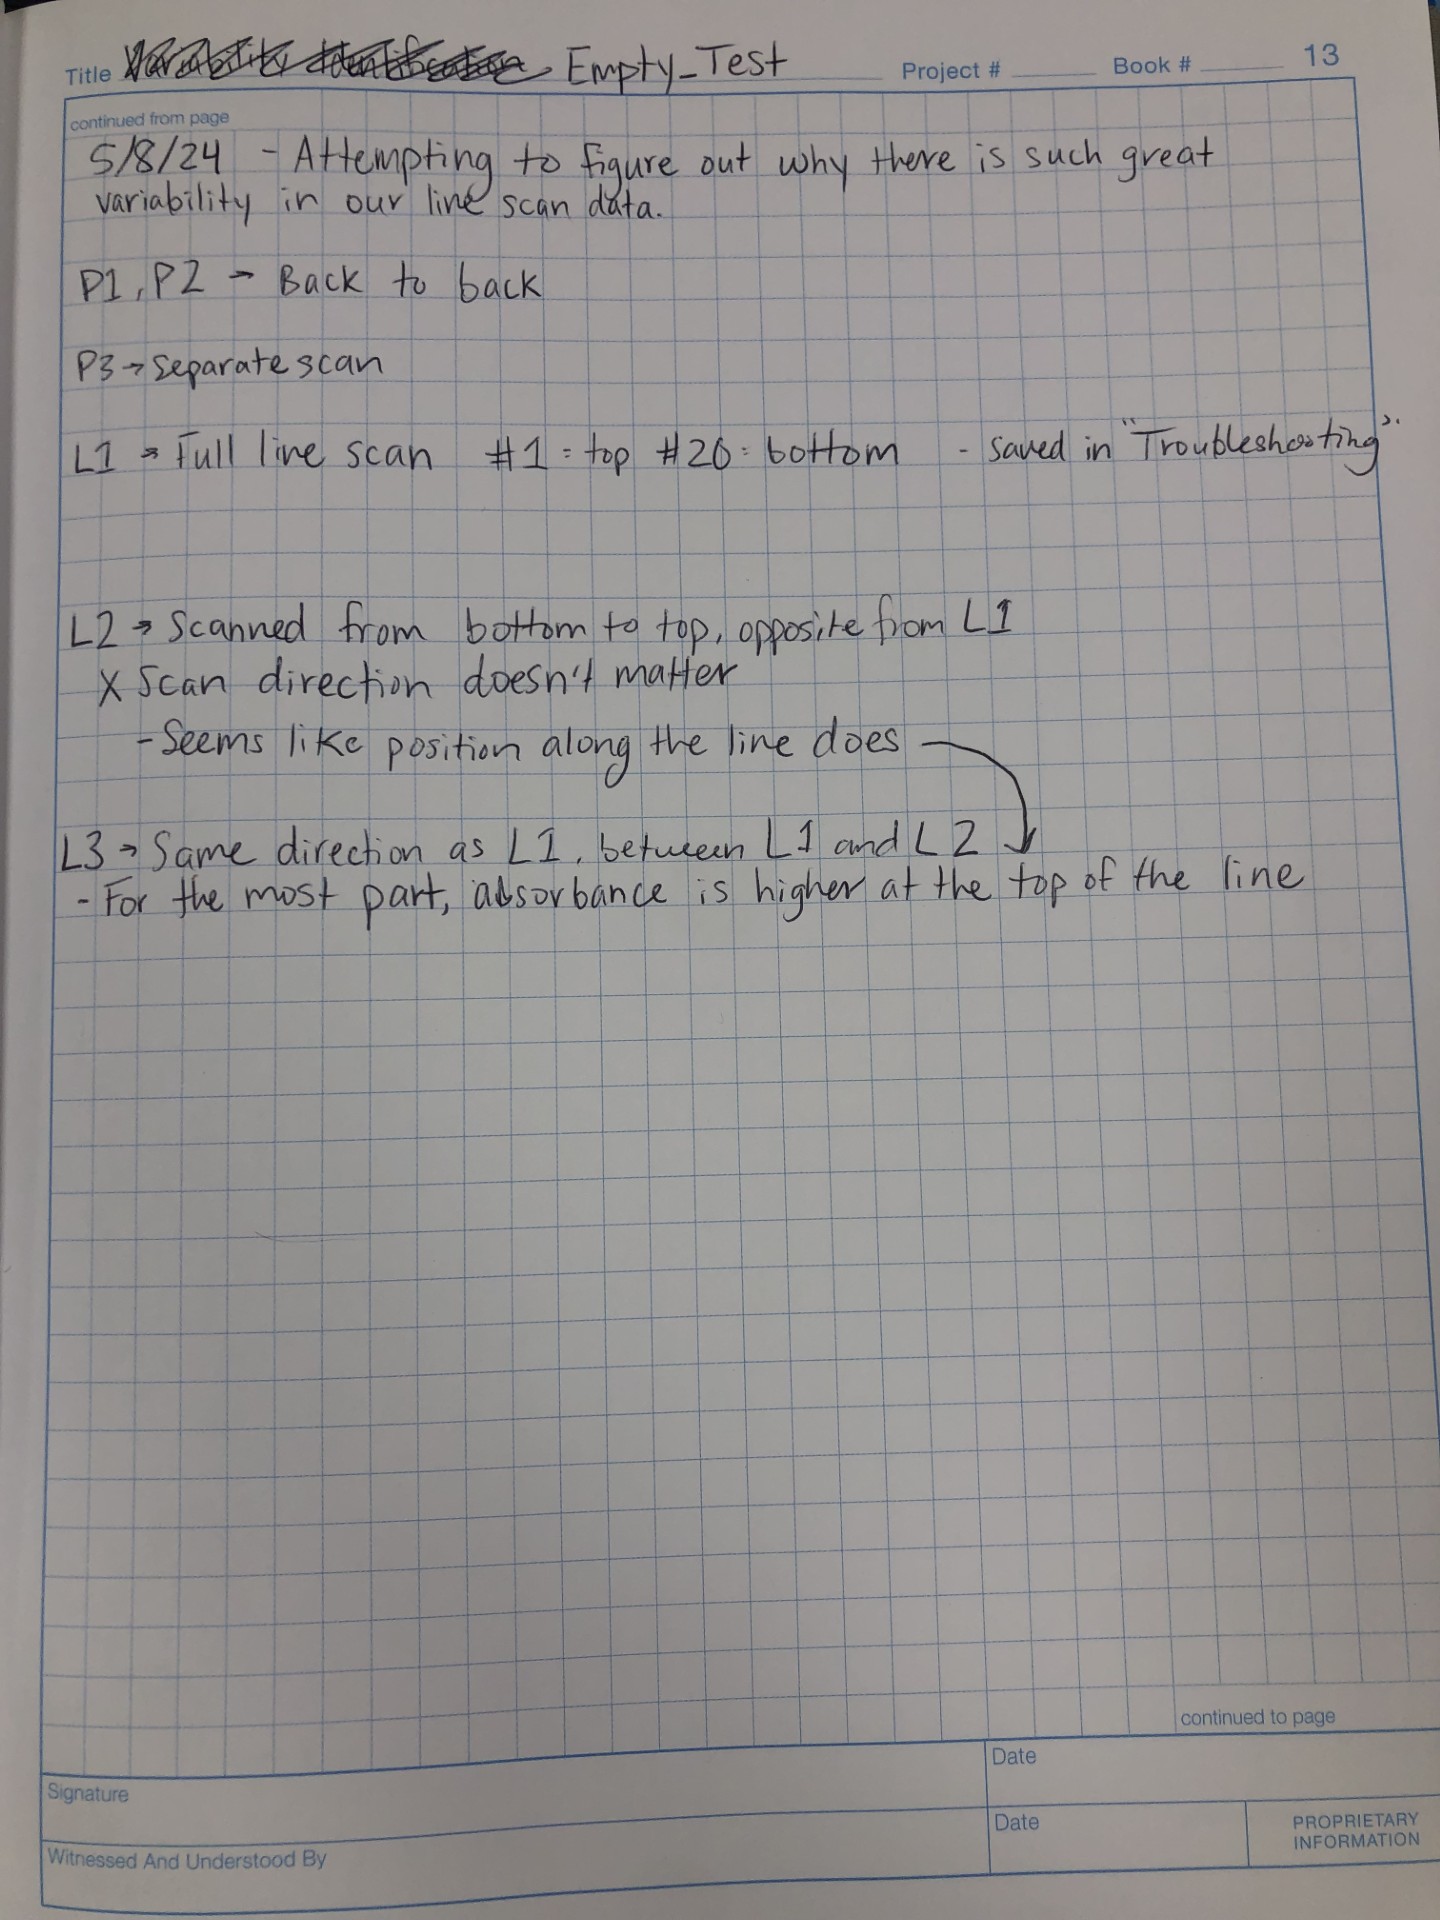 Title Empty_Test Project # Book # 13
continued from page
5/8/24 - Attempting to figure out why there is such great
variability in our line scan data.
P1, P2 → Back to back
P3 → Separate scan
L1 → Full line scan #1 = top #20 = bottom - saved in "Troubleshooting".
L2 → Scanned from bottom to top, opposite from L1
X Scan direction doesn't matter
- Seems like position along the line does
L3 → Same direction as L1, between L1 and L2
- For the most part, absorbance is higher at the top of the line
continued to page
Signature
Date
Witnessed And Understood By
Date
PROPRIETARY
INFORMATION